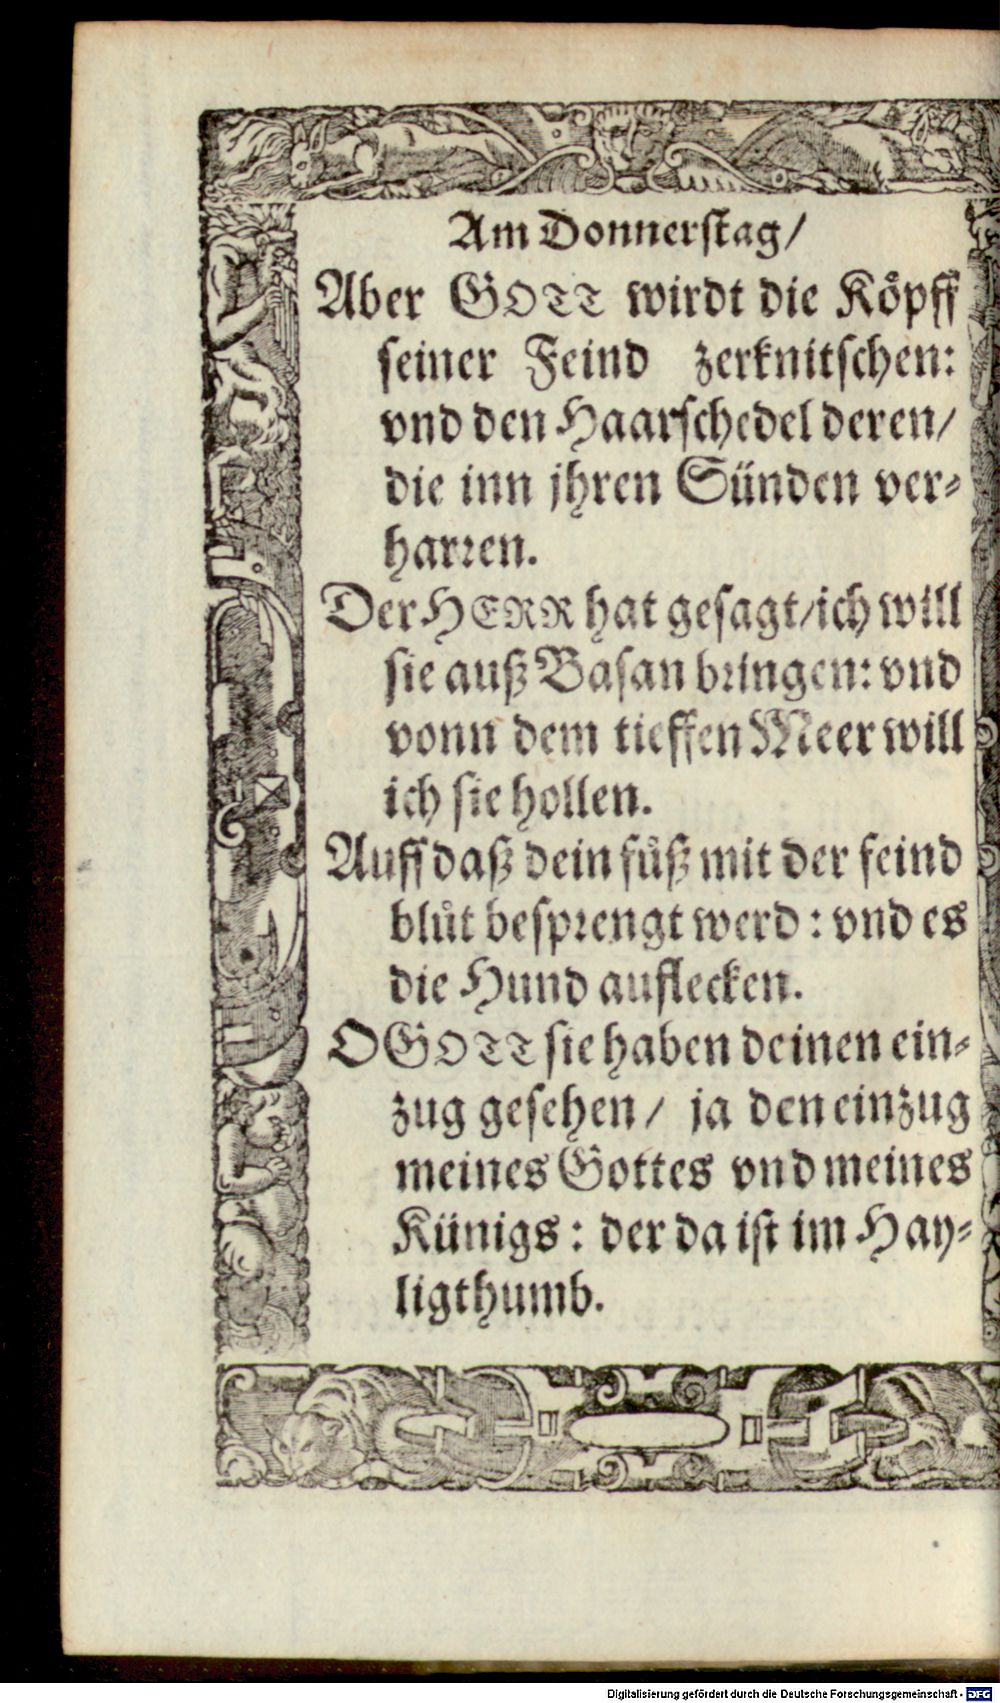 Am Donnerstag/
Aber GOTT wirdt die Köpff
seiner Feind zerknitschen:
vnd den Haarschedel deren/
die inn jhren Sünden ver⸗
harren.
Der HERR hat gesagt/ich will
sie auß Basan bringen: vnd
vonn dem tieffen Meer will
ich sie hollen.
Auff daß dein fuͤß mit der feind
bluͦt besprengt werd: vnd es
die Hund auflecken.
O GOTT sie haben deinen ein⸗
zug gesehen/ ja den einzug
meines Gottes vnd meines
Künigs: der da ist im Hay⸗
ligthumb.
Digitalisierung gefördert durch die Deutsche Forschungsgemeinschaft - DFG